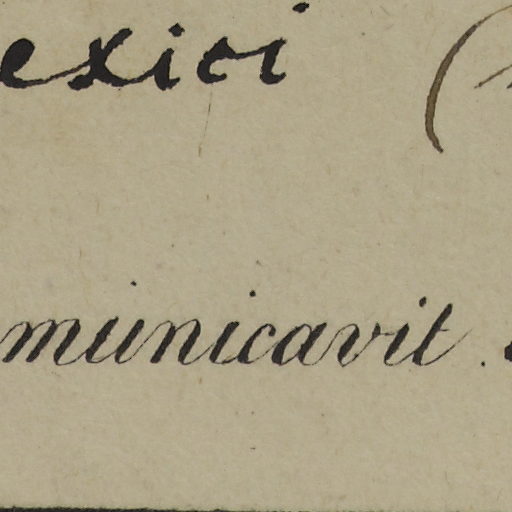 exici (
municavit .